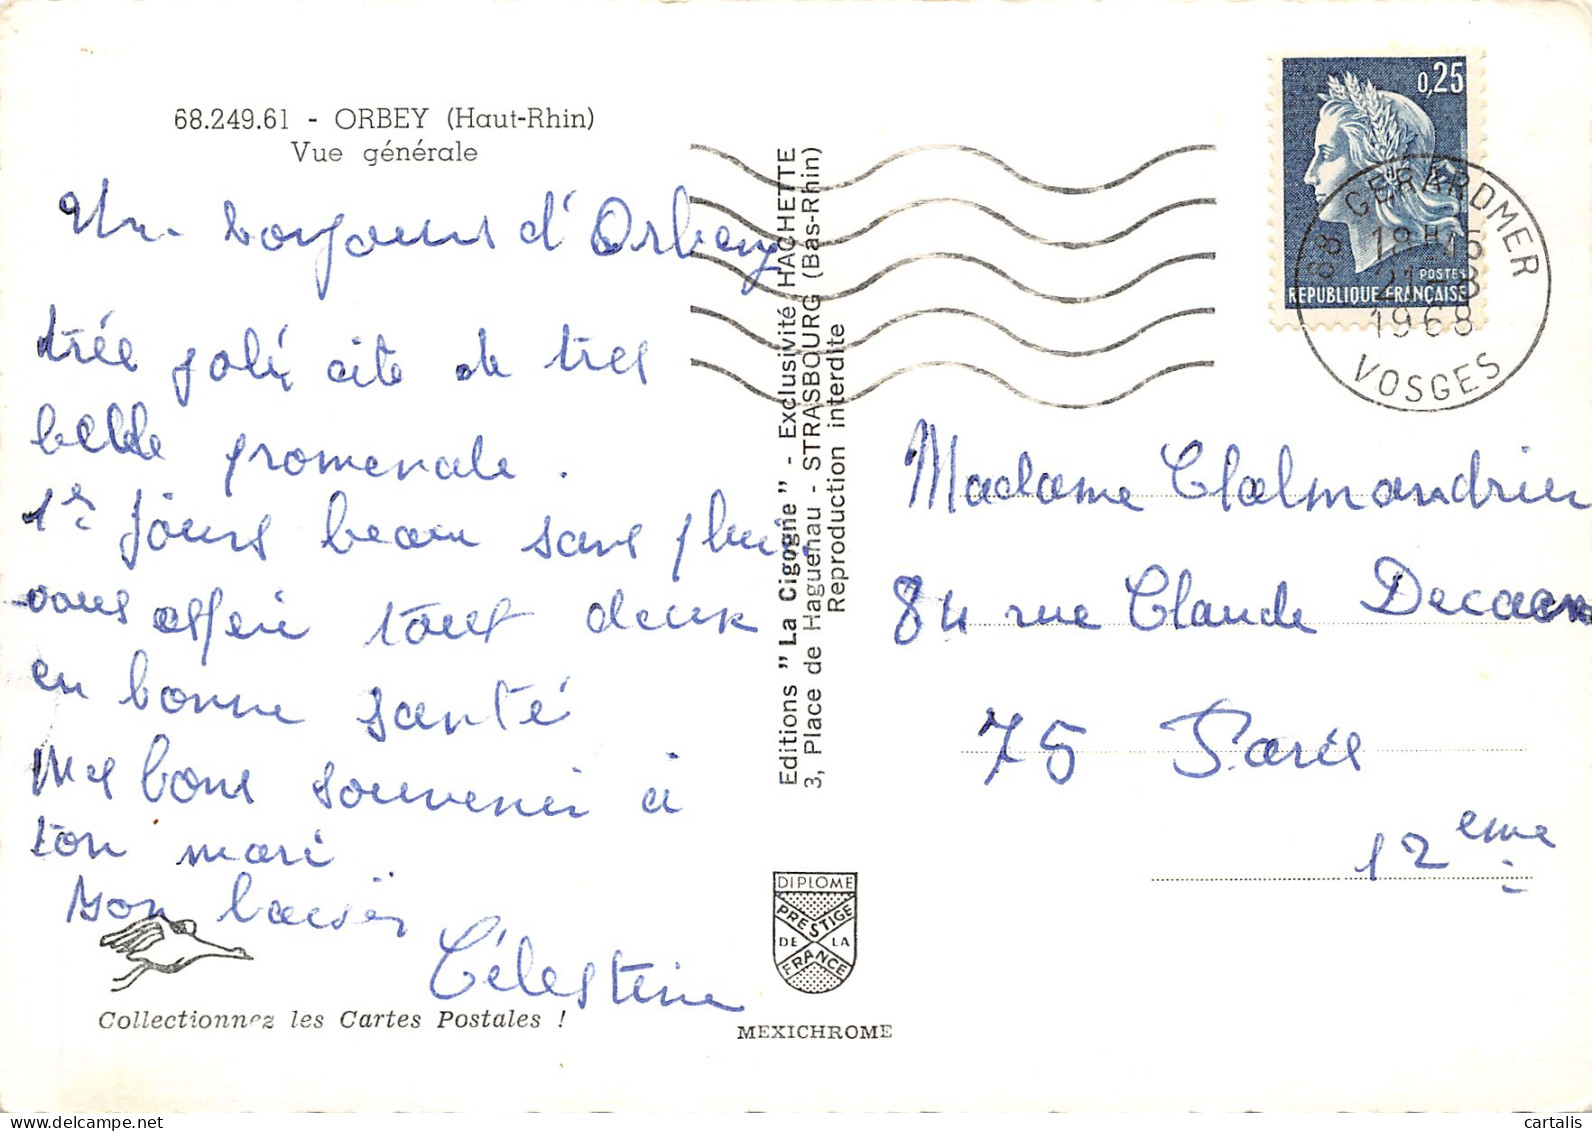 68.249.61 - ORBEY (Haut-Rhin)
Vue générale
Un bonjours d'Orbey
trée jolé cite de tres
belle promenade.
1er jours beau sans pluie
vous espere tout deux
en bonne santé
Mes bons souvenir à
ton mari
bon baiser
Célestine
Collectionnez les Cartes Postales !
Editions " La Cigogne " - Exclusivité HACHETTE
3, Place de Haguenau - STRASBOURG (Bas-Rhin)
Reproduction interdite
DIPLOME
PRESTIGE
DE LA
FRANCE
MEXICHROME
0,25
POSTES
REPUBLIQUE FRANÇAISE
88 GERARDMER
18H15
21-8
1968
VOSGES
Madame Clalmandrier
84 rue Claude Decaen
75 Paris
12eme
cartalis